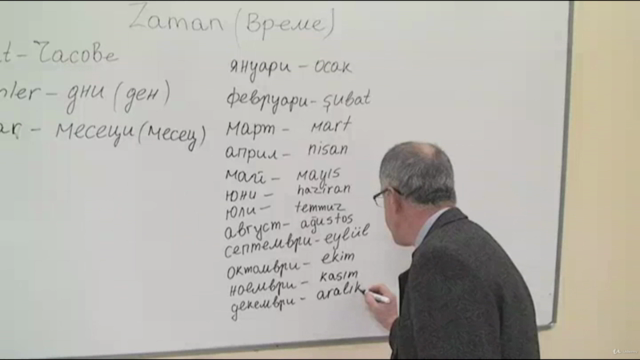 Zaman (Време)
t - Часове
nler - дни (ден)
ar - месеци (месец)
януари - ocak
февруари - şubat
март - mart
април - nisan
май - mayıs
юни - haziran
юли - temmuz
август - ağustos
септември - eylül
октомври - ekim
ноември - kasım
декември - aralık